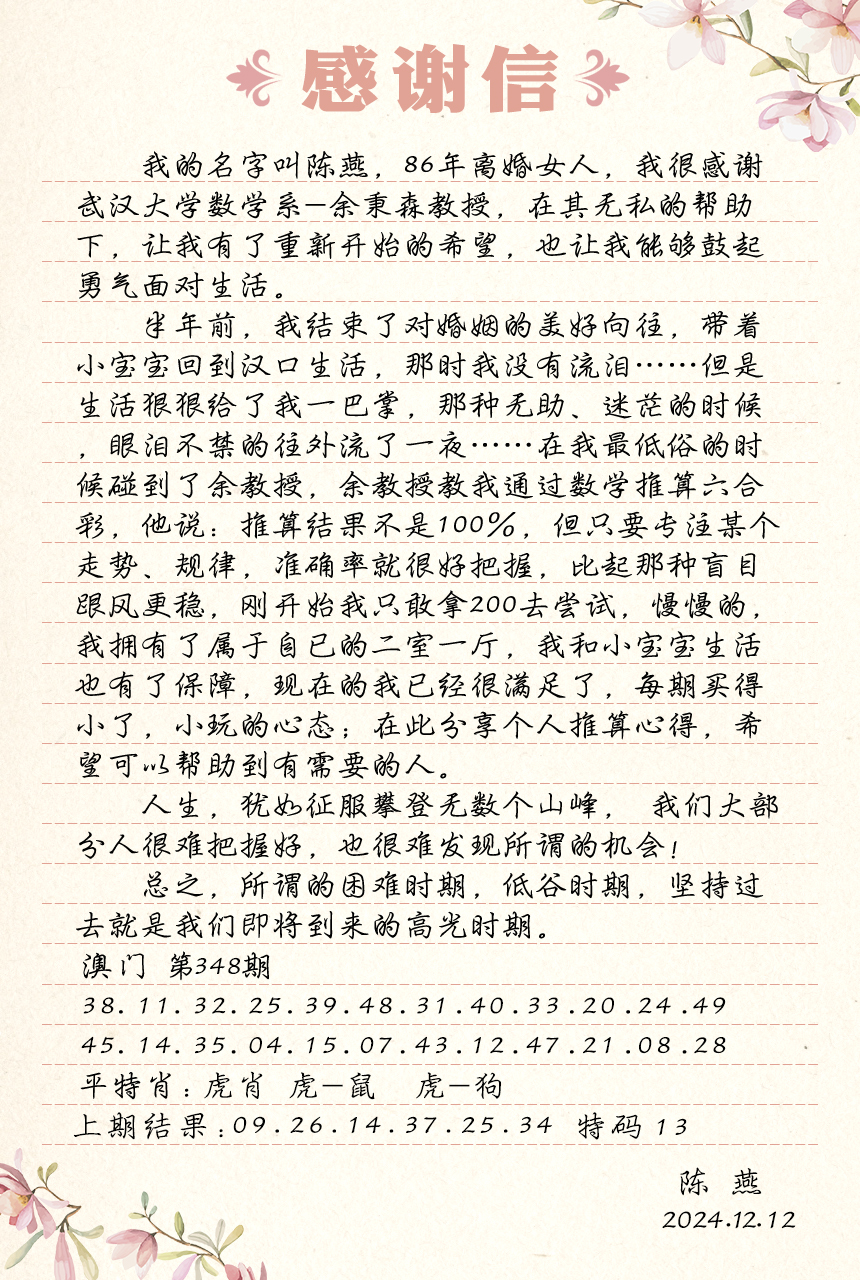 感谢信
我的名字叫陈燕，86年离婚女人，我很感谢
武汉大学数学系—余秉森教授，在其无私的帮助
下，让我有了重新开始的希望，也让我能够鼓起
勇气面对生活。
半年前，我结束了对婚姻的美好向往，带着
小宝宝回到汉口生活，那时我没有流泪……但是
生活狠狠给了我一巴掌，那种无助、迷茫的时候
，眼泪不禁的往外流了一夜……在我最低俗的时
候碰到了余教授，余教授教我通过数学推算六合
彩，他说：推算结果不是100%，但只要专注某个
走势、规律，准确率就很好把握，比起那种盲目
跟风更稳，刚开始我只敢拿200去尝试，慢慢的，
我拥有了属于自已的二室一厅，我和小宝宝生活
也有了保障，现在的我已经很满足了，每期买得
小了，小玩的心态；在此分享个人推算心得，希
望可以帮助到有需要的人。
人生，犹如征服攀登无数个山峰， 我们大部
分人很难把握好，也很难发现所谓的机会！
总之，所谓的困难时期，低谷时期，坚持过
去就是我们即将到来的高光时期。
澳门 第348期
38.11.32.25.39.48.31.40.33.20.24.49
45.14.35.04.15.07.43.12.47.21.08.28
平特肖：虎肖 虎—鼠 虎—狗
上期结果：09.26.14.37.25.34 特码 13
陈 燕
2024.12.12